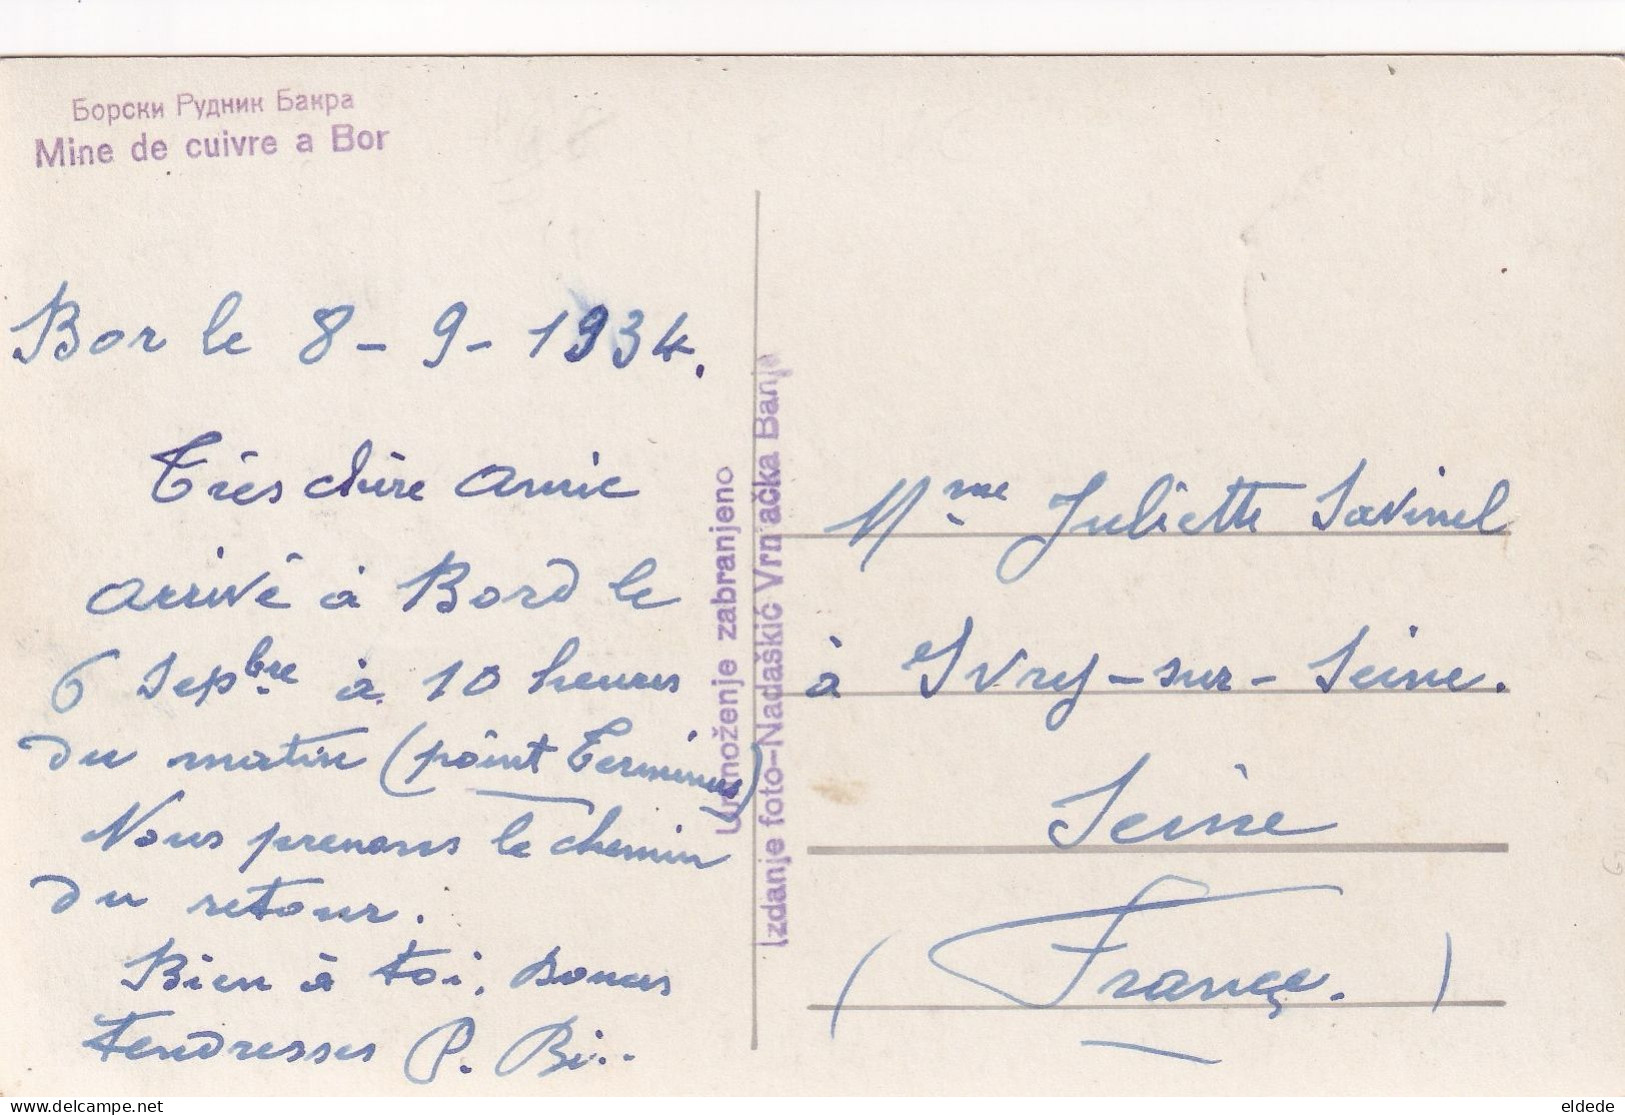 Борски Рудник Бакра
Mine de cuivre a Bor
Bor le 8-9-1934.
Très chère amie
arrivé à Bord le
6 Sepbre à 10 heures
du matin (point Terminus)
Nous prenons le chemin
du retour.
Bien à toi, Douces
tendresses P. Bi..
Umnoženje zabranjeno
Izdanje foto-Nadaškić Vrnjačka Banja
Mme Juliette Savinel
à Ivry-sur-Seine.
Seine
(France.)
delcampe.net
eldede